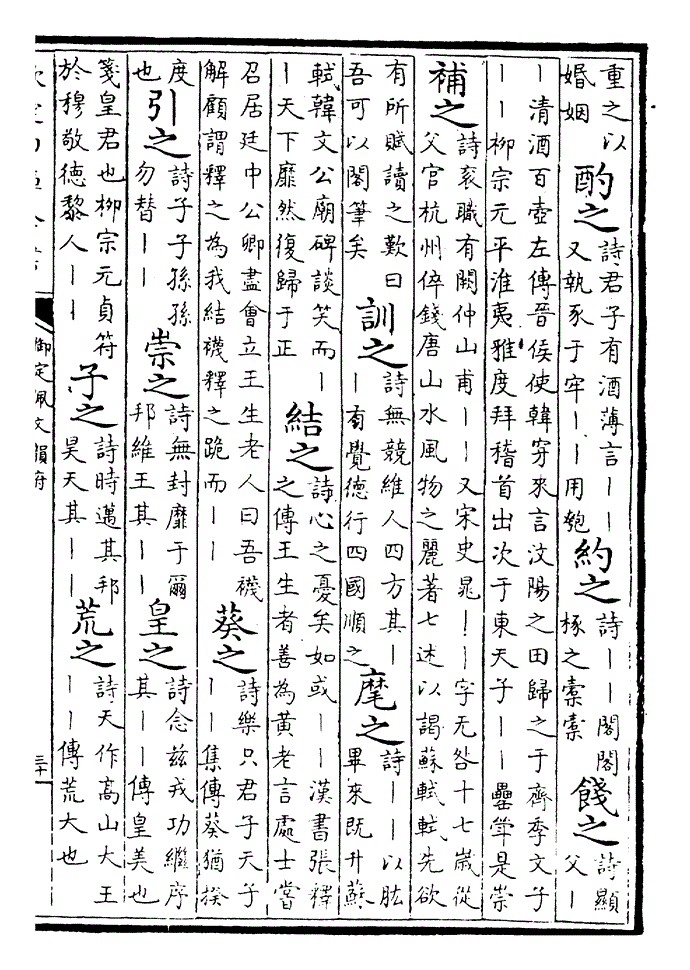 重之以婚姻 酌之 詩君子有酒薄言丨丨又執豕于牢丨丨用匏 約之 詩丨丨閣閣椓之橐橐 餞之 詩顯父丨
丨清酒百壺左傳晉侯使韓穿來言汶陽之田歸之于齊季文子丨丨柳宗元平淮夷雅度拜稽首出次于東天子丨丨罍斝是崇
補之 詩衮職有闕仲山甫丨丨又宋史晁丨丨字无咎十七歲從父官杭州倅錢唐山水風物之麗著七述以謁蘇軾軾先欲
有所賦讀之歎曰吾可以閣筆矣 訓之 詩無競維人四方其丨丨有覺德行四國順之 麾之 詩丨丨以肱畢來既升蘇
軾韓文公廟碑談笑而丨丨天下靡然復歸于正 結之 詩心之憂矣如或丨丨漢書張釋之傳王生者善為黄老言處士嘗
召居廷中公卿盡會立王生老人曰吾襪解顧謂釋之為我結襪釋之跪而丨丨 葵之 詩樂只君子天子丨丨集傳葵猶揆
度也 引之 詩子子孫孫勿替丨丨 崇之 詩無封靡于爾邦維王其丨丨 皇之 詩念兹戎功繼序其丨丨傳皇美也
箋皇君也柳宗元貞符於穆敬德黎人丨丨 子之 詩時邁其邦昊天其丨丨 荒之 詩天作髙山大王丨丨傳荒大也
御定佩文韻府
三十